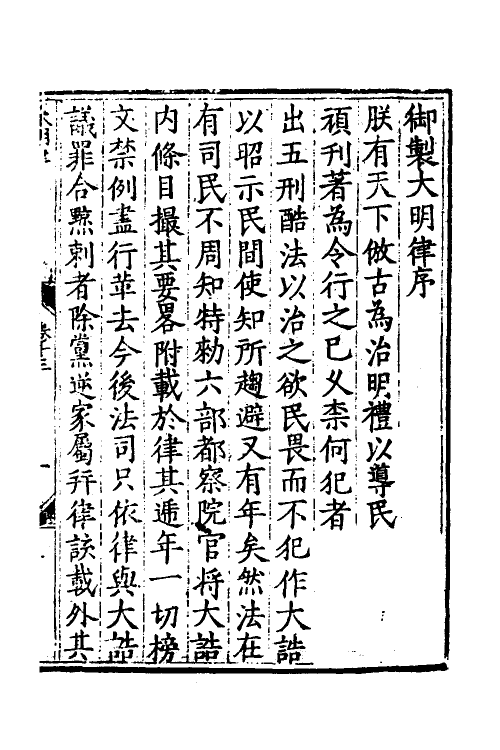 御製大明律序
朕有天下倣古為治明禮以導民
頑刊著為令行之已乆柰何犯者
出五刑酷法以治之欲民畏而不犯作大誥
以昭示民間使知所趨避又有年矣然法在
有司民不周知特勑六部都察院官將大誥
内條目撮其要畧附載於律其逓年一切榜
文禁例盡行革去今後法司只依律與大誥
議罪合黥刺者除黨逆家屬幷律該載外其